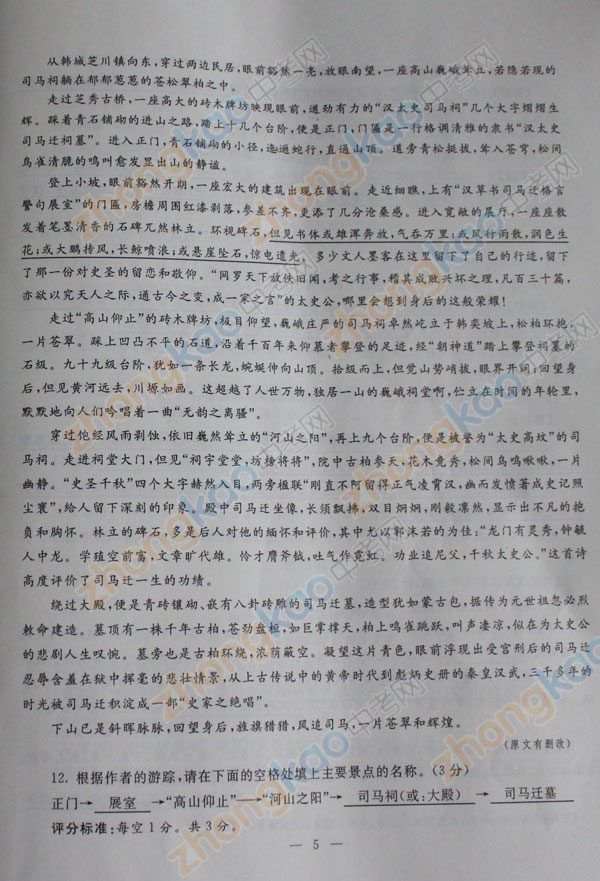 从韩城芝川镇向东，穿过两边民居，眼前豁然一亮，放眼南望，一座高山巍峨耸立，若隐若现的
司马祠躺在郁郁葱葱的苍松翠柏之中。
走过芝秀古桥，一座高大的砖木牌坊映现眼前，遒劲有力的“汉太史司马祠”几个大字熠熠生
辉。踩着青石铺砌的进山之路，踏上十几个台阶，便是正门，门匾是一行格调清雅的隶书“汉太史
司马迁祠墓”。进入正门，青石铺砌的小径，迤逦蛇行，直通山顶。道旁青松挺拔，耸入苍穹，松间
鸟雀清脆的鸣叫愈发显出山的静谧。
登上小坡，眼前豁然开朗，一座宏大的建筑出现在眼前。走近细瞧，上有“汉草书司马迁格言
警句展室”的门匾，房檐周围红漆剥落，参差不齐，更添了几分沧桑感。进入宽敞的展厅，一座座散
发着笔墨清香的石碑兀然林立。环视碑石，但见书体或雄浑奔放，气吞万里；或风行雨散，润色生
花；或大鹏抟风，长鲸喷浪；或悬崖坠石，惊电遗光。多少文人墨客在这里留下了自己的行迹，留下
了那一份对史圣的留恋和敬仰。“网罗天下放佚旧闻，考之行事，稽其成败兴坏之理，凡百三十篇，
亦欲以究天人之际，通古今之变，成一家之言”的太史公，哪里会想到身后的这般荣耀！
走过“高山仰止”的砖木牌坊，极目仰望，巍峨庄严的司马祠卓然屹立于韩奕坡上，松柏环抱，
一片苍翠。踩上凹凸不平的石道，沿着千百年来仰慕者攀登的足迹，经“朝神道”踏上攀登祠墓的
石级。九十九级台阶，犹如一条长龙，蜿蜒伸向山顶。拾级而上，但觉山势峭拔，眼界开阔；回望身
后，但见黄河远去，川塬如画。这超越了人世万物，独居一山的巍峨祠堂啊，伫立在时间的年轮里，
默默地向人们吟唱着一曲“无韵之离骚”。
穿过饱经风雨剥蚀，依旧巍然耸立的“河山之阳”，再上九个台阶，便是被誉为“太史高坟”的司
马祠。走进祠堂大门，但见“祠宇堂堂，坊榜将将”，院中古柏参天，花木竞秀，松间鸟鸣啾啾，一片
幽静。“史圣千秋”四个大字赫然入目，两旁楹联“刚直不阿留得正气凌霄汉，幽而发愤著成史记照
尘寰”，给人留下深刻的印象。殿中司马迁坐像，长须飘拂，双目炯炯，刚毅凛然，显示出不凡的抱
负和胸怀。林立的碑石，多是后人对他的缅怀和评价，其中尤以郭沫若的为佳：“龙门有灵秀，钟毓
人中龙。学殖空前富，文章旷代雄。怜才膺斧钺，吐气作霓虹。功业追尼父，千秋太史公。”这首诗
高度评价了司马迁一生的功绩。
绕过大殿，便是青砖镶砌、嵌有八卦砖雕的司马迁墓，造型犹如蒙古包，据传为元世祖忽必烈
敕命建造。墓顶有一株千年古柏，苍劲盘桓，如巨掌撑天，柏上鸣雀跳跃，叫声凄凉，似在为太史公
的悲剧人生叹惋。墓旁也是古柏环绕，浓荫蔽空。凝望这片青色，眼前浮现出受宫刑后的司马迁
忍辱含羞在狱中挥毫的悲壮情景，从上古传说中的黄帝时代到彪炳史册的秦皇汉武，三千多年的
时光被司马迁积淀成一部“史家之绝唱”。
下山已是斜晖脉脉，回望身后，旌旗猎猎，风追司马，一片苍翠和辉煌。
（原文有删改）
12. 根据作者的游踪，请在下面的空格处填上主要景点的名称。（3 分）
正门→ 展室 →“高山仰止”→“河山之阳”→ 司马祠(或：大殿) → 司马迁墓
评分标准：每空 1 分。共 3 分。
— 5 —
zhongkao中考网